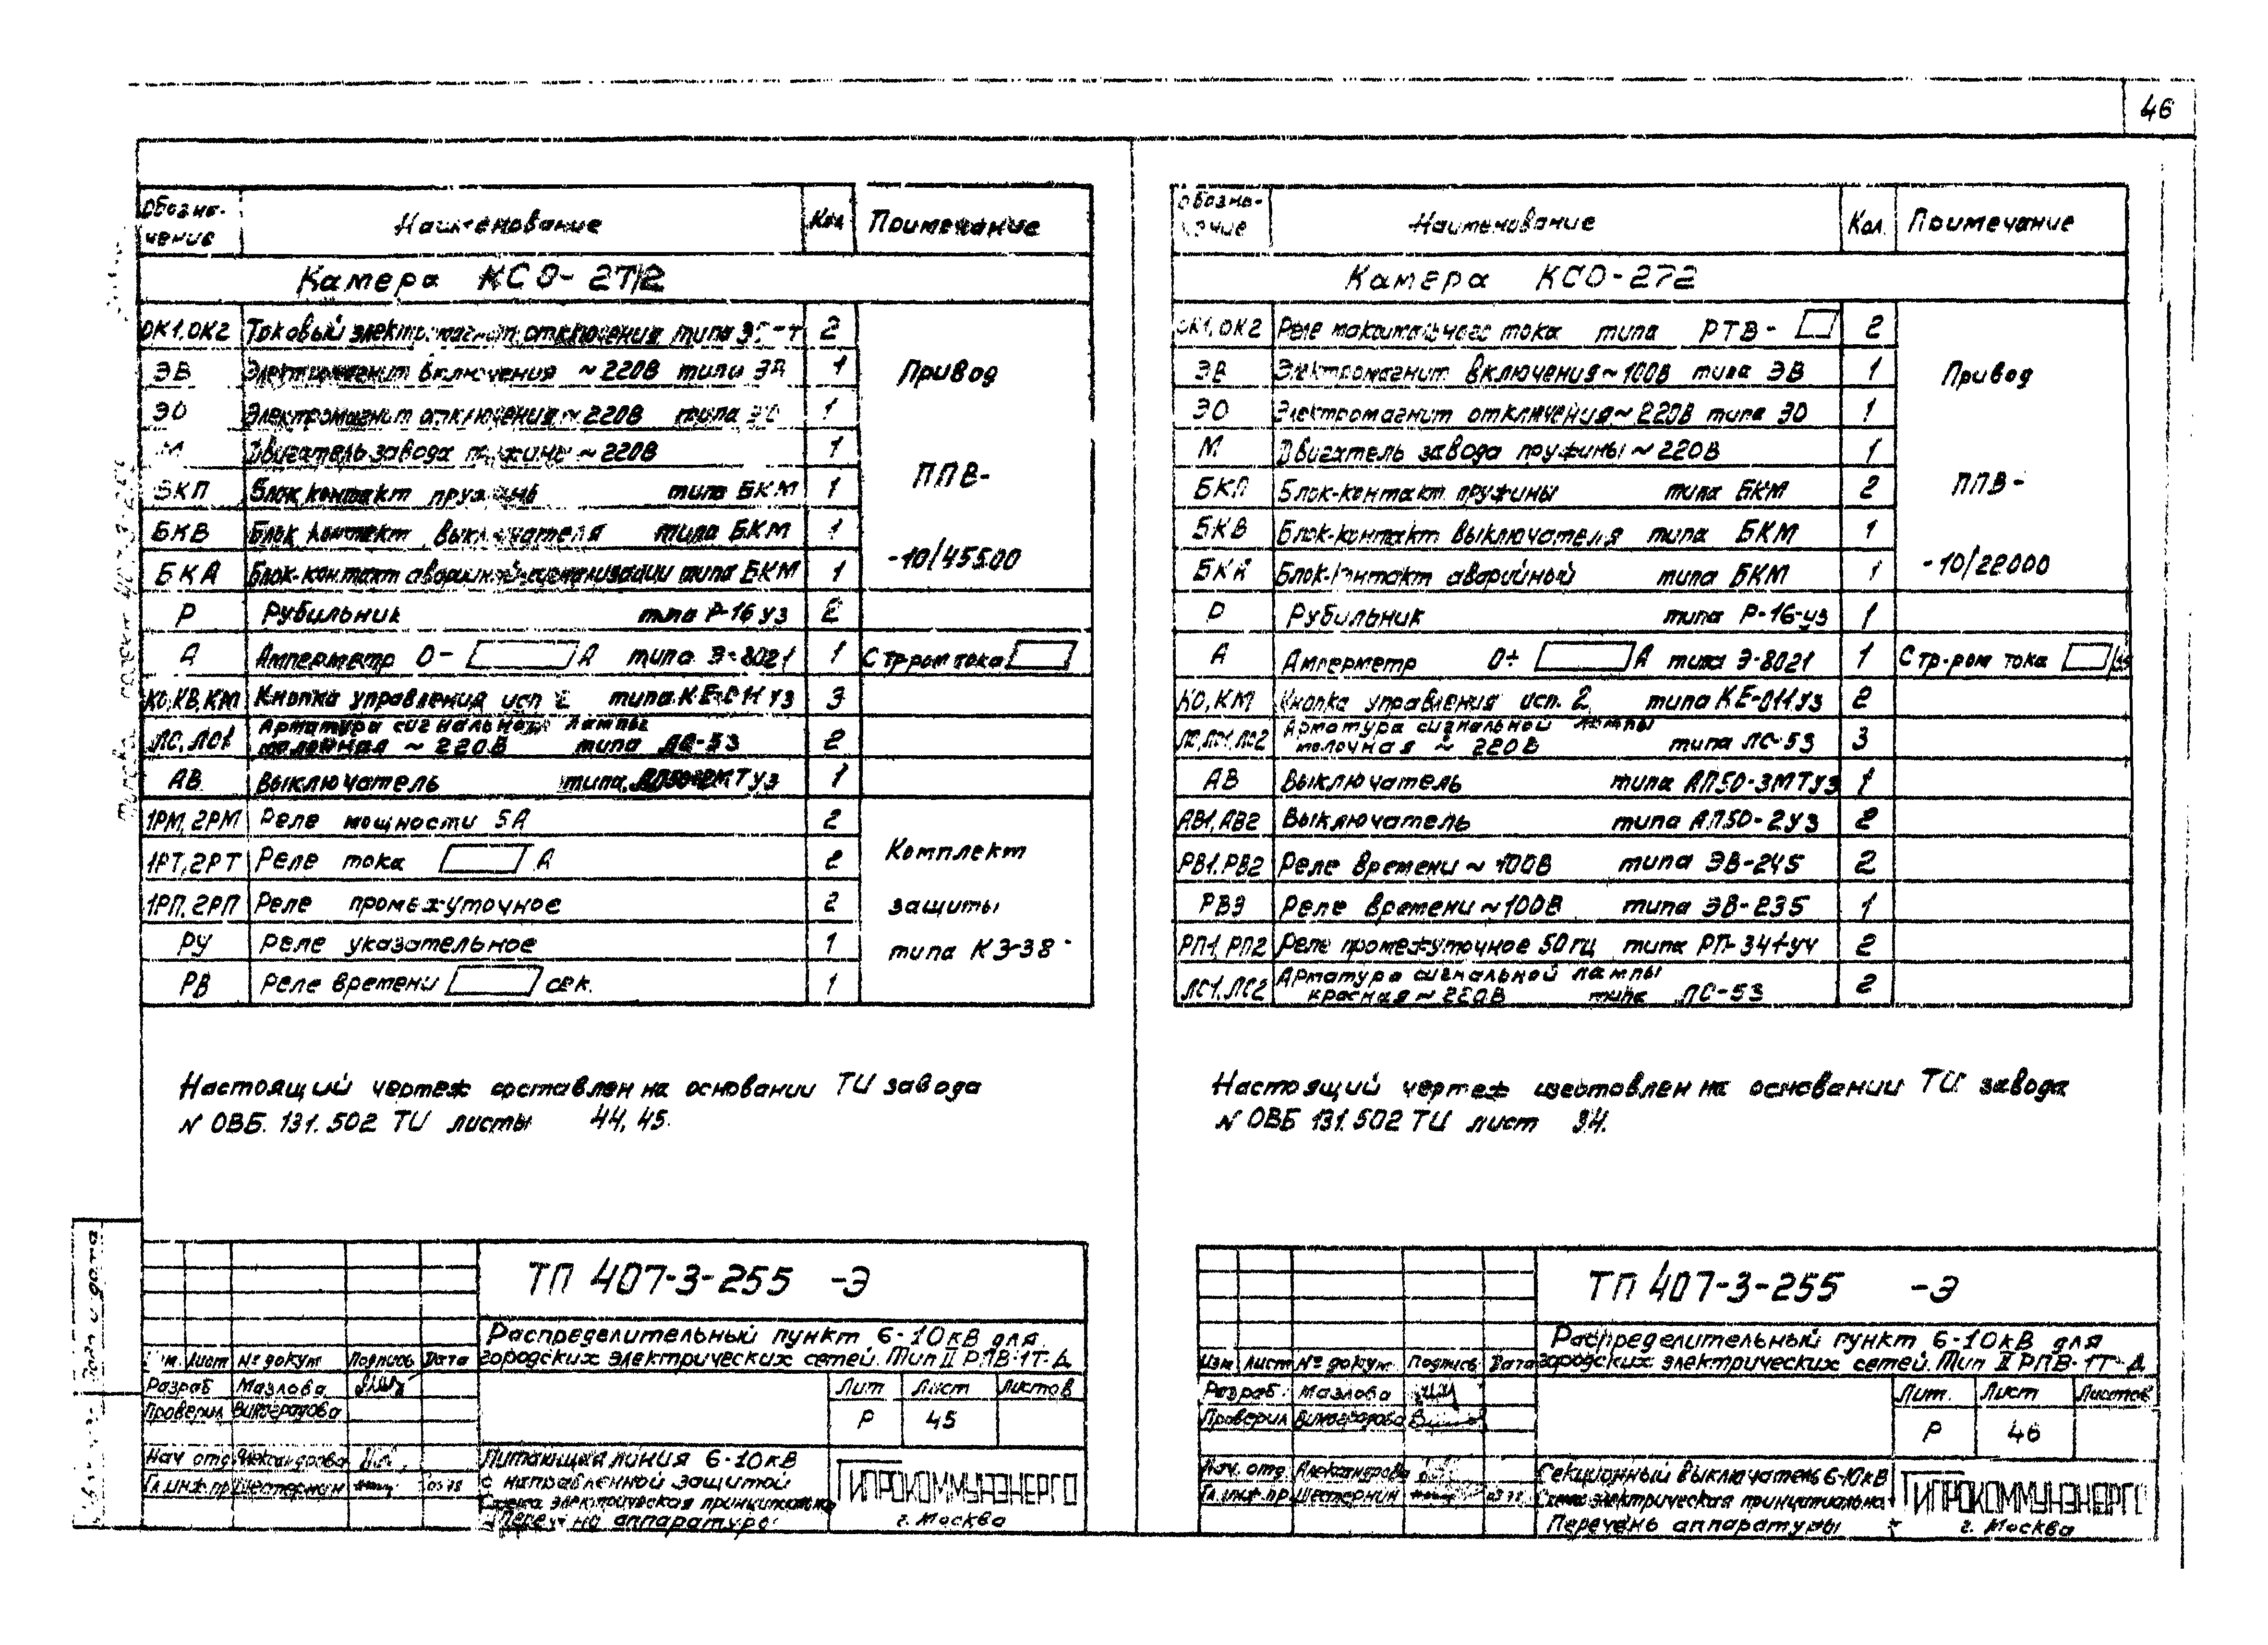 46
Обозна-
чение
Наименование
Кол
Примечание
Камера КСО-272
ОК1,ОК2 Токовый электромагнит отключения типа 2
ЭВ Электромагнит включения ~220В типа ЭВ 1
ЭО Электромагнит отключения ~220В типа ЭО 1
М Двигатель завода пружины ~220В 1
БКП Блок контакт пружины типа БКМ 1
БКВ Блок контакт выключателя типа БКМ 1
БКА Блок-контакт аварийной сигнализации типа БКМ 1
Привод
ППВ-
-10/45500
Р Рубильник типа Р-16 УЗ 2
А Амперметр 0- А типа Э-8021 1 С тр.ром тока
КО,КВ,КМ Кнопка управления исп 2 типа КЕ-011 УЗ 3
ЛС,ЛО1 Арматура сигнальной лампы
молочная ~220В типа ЛС-53 2
АВ Выключатель типа УЗ 1
1РМ,2РМ Реле мощности 5А 2
1РТ,2РТ Реле тока А 2
1РП,2РП Реле промежуточное 2
РУ Реле указательное 1
РВ Реле времени сек. 1
Комплект
защиты
типа КЗ-38
Настоящий чертеж составлен на основании ТИ завода
N ОВБ. 131.502 ТИ листы 44,45.
ТП 407-3-255 -Э
Распределительный пункт 6-10кВ для
городских электрических сетей. Тип II РПВ-1Т-Д
Изм. Лист № докум Подпись Дата
Разраб Мазлова
Проверил Виноградова
Нач отд Александрова
Гл.инж.пр Шестернин 03.78
Лит Лист Листов
Р 45
Питающая линия 6-10кВ
с направленной защитой
Схема электрическая принципиальная
Перечень аппаратуры
ГИПРОКОММУНЭНЕРГО
г. Москва
Обозна-
чение
Наименование
Кол.
Примечание
Камера КСО-272
ОК1,ОК2 Реле максимального тока типа РТВ- 2
ЭВ Электромагнит включения ~100В типа ЭВ 1
ЭО Электромагнит отключения ~220В типа ЭО 1
М Двигатель завода пружины ~220В 1
БКП Блок-контакт пружины типа БКМ 2
БКВ Блок-контакт выключателя типа БКМ 1
БКА Блок-контакт аварийный типа БКМ 1
Привод
ППВ-
-10/22000
Р Рубильник типа Р-16-УЗ 1
А Амперметр 0÷ А типа Э-8021 1 С тр-ром тока
КО,КМ Кнопка управления исп. 2 типа КЕ-011УЗ 2
ЛО,ЛО1,ЛО2 Арматура сигнальной лампы
молочная ~220В типа ЛС-53 3
АВ Выключатель типа АП50-3МТУЗ 1
АВ1,АВ2 Выключатель типа АП50-2УЗ 2
РВ1.РВ2 Реле времени ~100В типа ЭВ-245 2
РВЗ Реле времени ~100В типа ЭВ-235 1
РП1,РП2 Реле промежуточное 50гц типа РП-341-У4 2
ЛС1.ЛС2 Арматура сигнальной лампы
красная ~220В типа ЛС-53 2
Настоящий чертеж изготовлен на основании ТИ завода
N ОВБ 131.502 ТИ лист 34.
ТП 407-3-255 -Э
Распределительный пункт 6-10кВ для
городских электрических сетей. Тип II РПВ-1Т-Д
Изм Лист № докум. Подпись Дата
Разраб. Мазлова
Проверил Виноградова
Нач. отд. Александрова
Гл.инж.пр. Шестернин
Лит. Лист Листов
Р 46
Секционный выключатель 6-10кВ
Схема электрическая принципиальная
Перечень аппаратуры
ГИПРОКОММУНЭНЕРГО
г. Москва